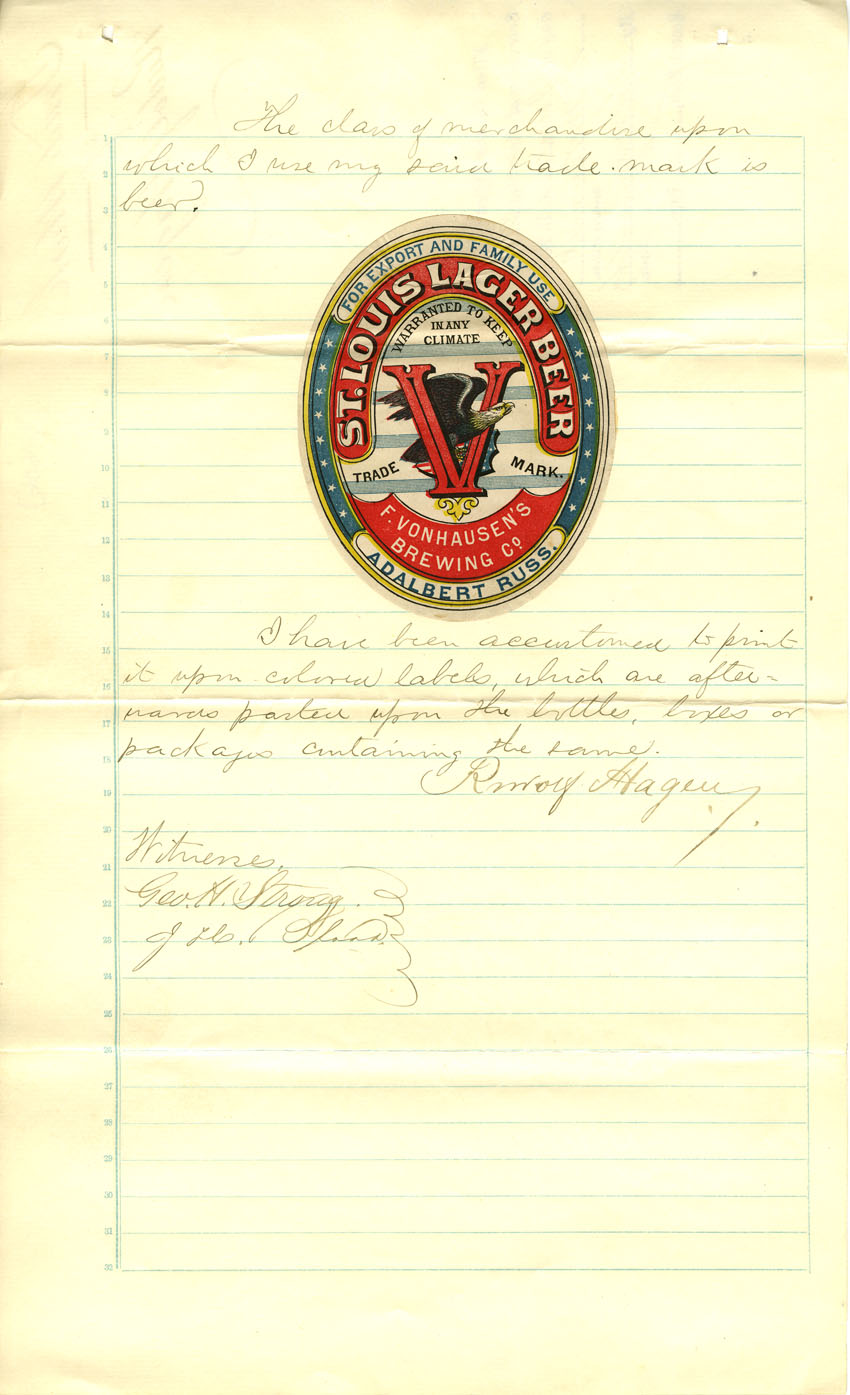 The class of merchandise upon
which I use my said trade-mark is
beer.
FOR EXPORT AND FAMILY USE
ST. LOUIS LAGER BEER
WARRANTED TO KEEP
IN ANY
CLIMATE
V
TRADE MARK.
F. VONHAUSEN'S
BREWING Co.
ADALBERT RUSS.
I have been accustomed to print
it upon colored labels, which are after-
wards pasted upon the bottles, boxes or
packages containing the same.
Rudolf Hagen
Witnesses.
Geo. H. Strong.
1
2
3
4
5
6
7
8
9
10
11
12
13
14
15
16
17
18
19
20
21
22
23
24
25
26
27
28
29
30
31
32